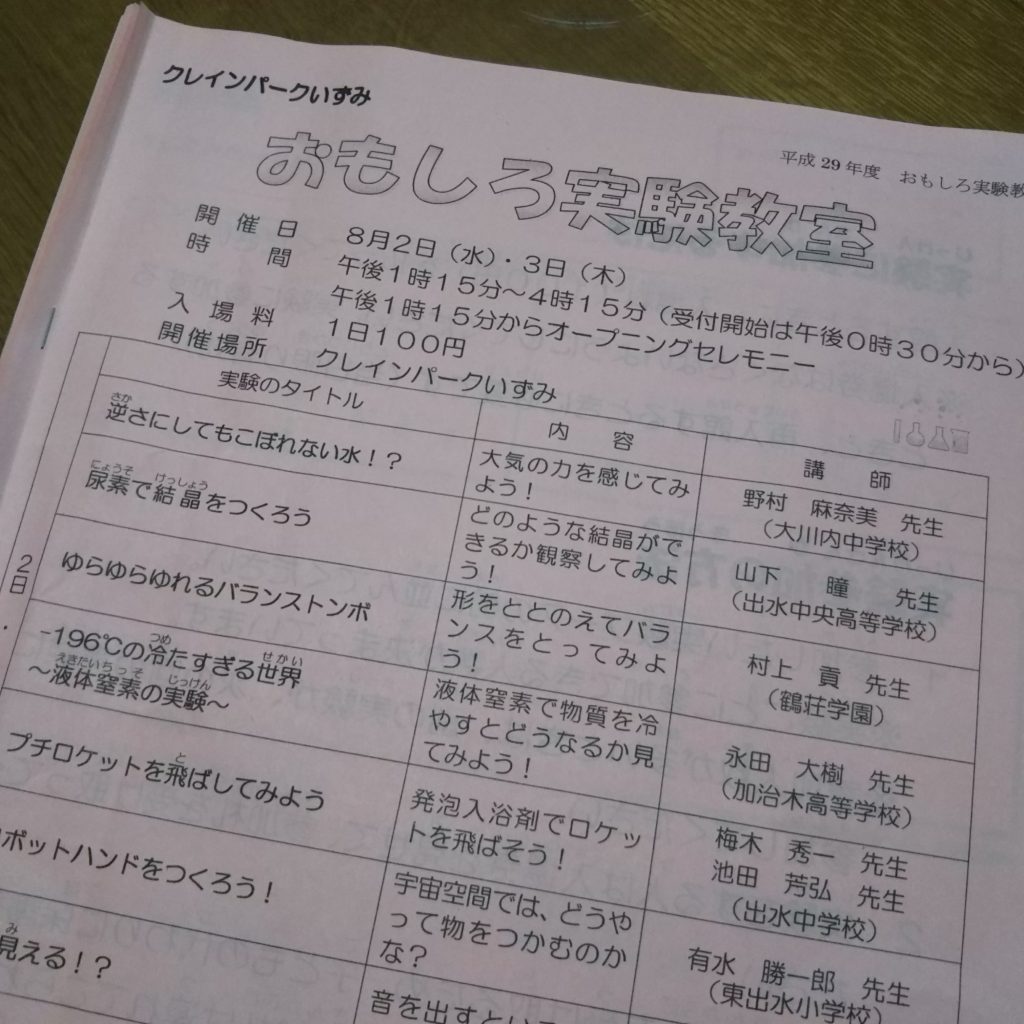 クレインパークいずみ
平成 29 年度 おもしろ実験教
おもしろ実験教室
開 催 日 8月2日（水）・3日（木）
時 間 午後1時15分～4時15分（受付開始は午後0時30分から）
午後1時15分からオープニングセレモニー
入 場 料 1日100円
開催場所 クレインパークいずみ
実験のタイトル
内 容
講 師
2日
さか
逆さにしてもこぼれない水！？
大気の力を感じてみ
よう！
野村 麻奈美 先生
（大川内中学校）
にょうそ けっしょう
尿素で結晶をつくろう
どのような結晶がで
きるか観察してみよ
う！
山下 瞳 先生
（出水中央高等学校）
ゆらゆらゆれるバランストンボ
形をととのえてバラ
ンスをとってみよ
う！
村上 貢 先生
（鶴荘学園）
つめ せかい
-196℃の冷たすぎる世界
えきたいちっそ じっけん
～液体窒素の実験～
液体窒素で物質を冷
やすとどうなるか見
てみよう！
永田 大樹 先生
（加治木高等学校）
と
プチロケットを飛ばしてみよう
発泡入浴剤でロケッ
トを飛ばそう！
梅木 秀一 先生
池田 芳弘 先生
（出水中学校）
ボットハンドをつくろう！
宇宙空間では、どうや
って物をつかむのか
な？
有水 勝一郎 先生
（東出水小学校）
み
見える！？
音を出すとい